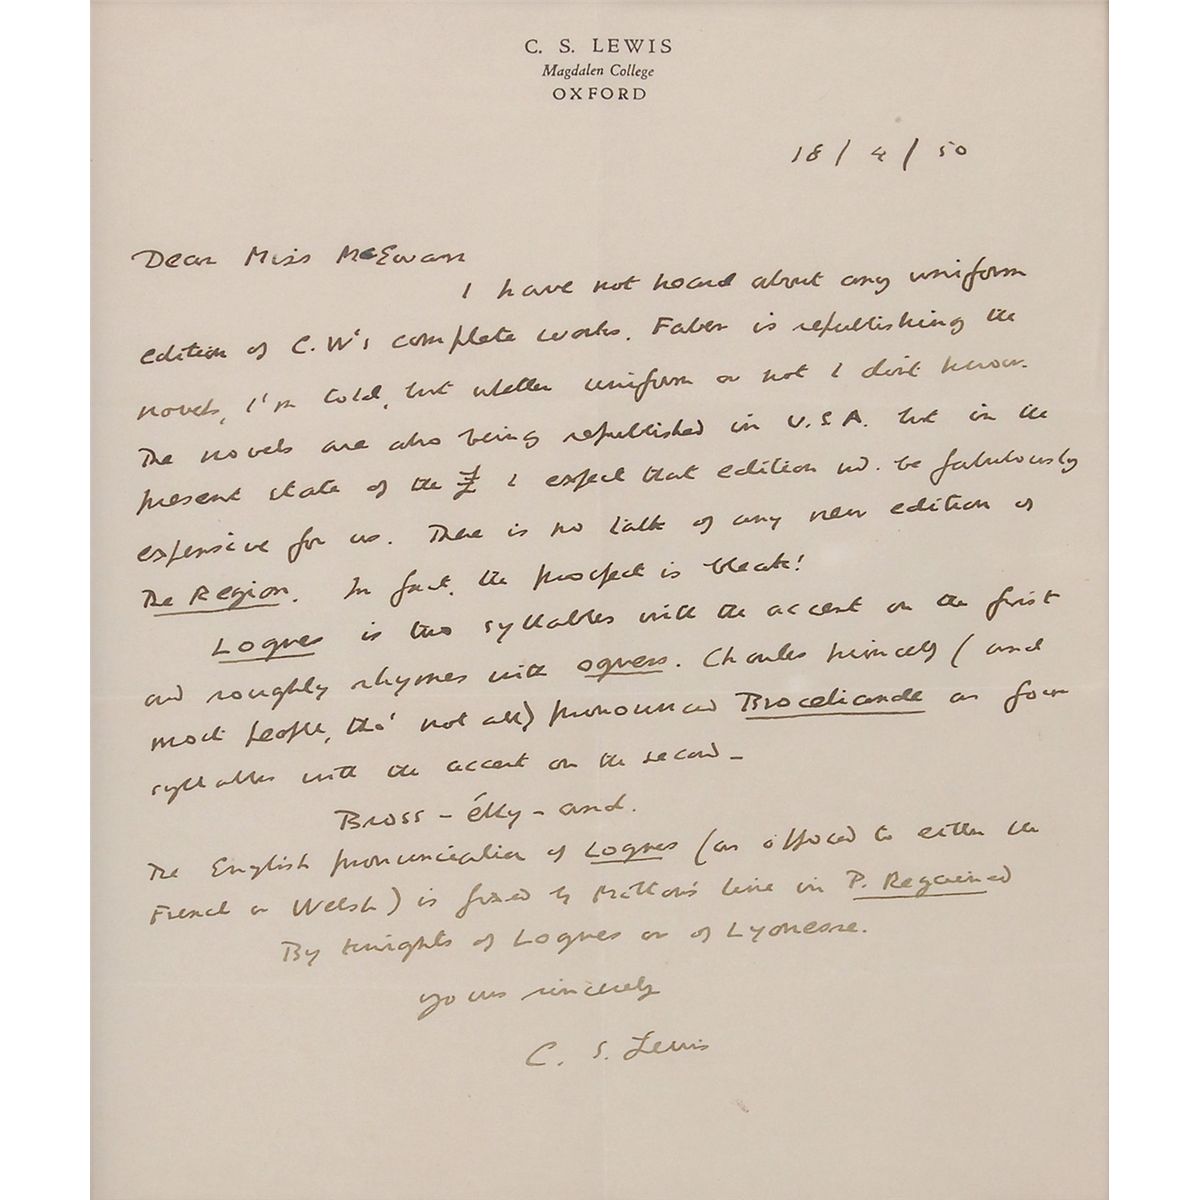 C. S. LEWIS
Magdalen College
OXFORD
18 / 4 / 50
Dear Miss McEwan
I have not heard about any uniform
edition of C.W's complete works. Faber is republishing the
novels, I'm told, but whether uniform or not I don't know.
The novels are also being republished in U.S.A. but in the
present state of the £ I expect that edition wd. be fabulously
expensive for us. There is no talk of any new edition of
The Region. In fact, the prospect is bleak!
Logres is two syllables with the accent on the first
and roughly rhymes with ogress. Charles himself (and
most people, tho' not all) pronounced Broceliande as four
syllables with the accent on the second –
Bross – élly – and.
The English pronunciation of Logres (as opposed to either the
French or Welsh) is fixed by Milton's line in P. Regained
By knights of Logres or of Lyonesse.
yours sincerely
C. S. Lewis